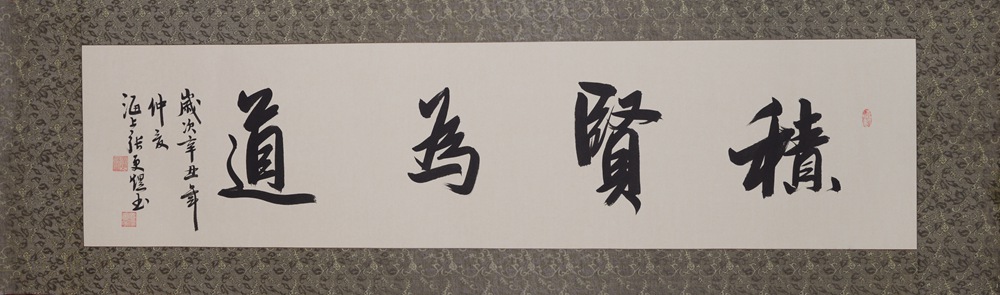 積賢為道
歲次辛丑年
仲夏
海上張更煜书